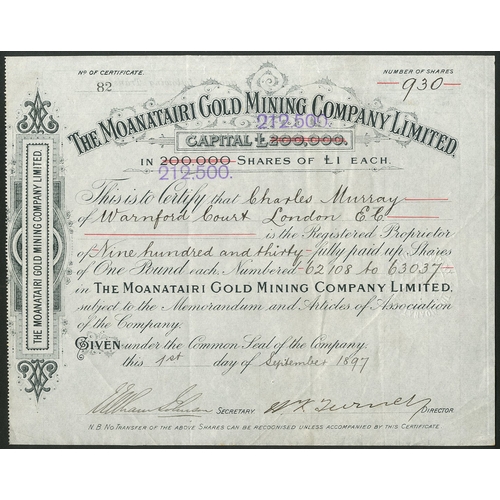 No OF CERTIFICATE.
82
NUMBER OF SHARES
930
THE MOANATAIRI GOLD MINING COMPANY LIMITED.
212.500.
CAPITAL £200,000.
IN 200,000 SHARES OF £1 EACH.
212.500.
This is to Certify that Charles Murray
of Warnford Court London E.C.
is the Registered Proprietor
of Nine hundred and thirty fully paid up Shares
of One Pound each, Numbered 62108 to 63037
in THE MOANATAIRI GOLD MINING COMPANY LIMITED,
subject to the Memorandum and Articles of Association
of the Company.
GIVEN under the Common Seal of the Company,
this 1st day of September 1897
SECRETARY
DIRECTOR
N.B. NO TRANSFER OF THE ABOVE SHARES CAN BE RECOGNISED UNLESS ACCOMPANIED BY THIS CERTIFICATE
THE MOANATAIRI GOLD MINING COMPANY LIMITED.